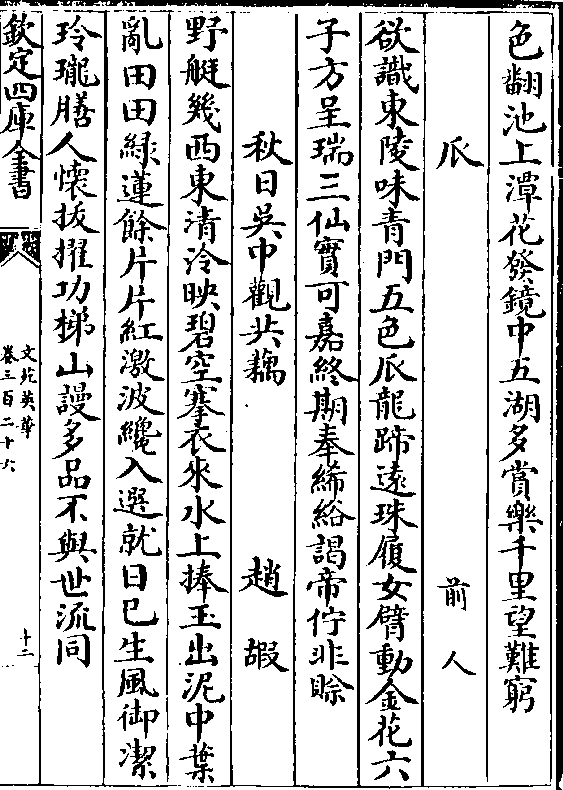 色翻池上潭花發鏡中五湖多賞樂千里望難窮
瓜 前人
欲識東陵味青門五色瓜龍蹄逺珠履女臂動金花六
子方呈瑞三仙實可嘉終期奉絺綌謁帝佇非賖
秋日吳中觀共藕 趙嘏
野艇幾西東清泠映碧空褰衣來水上捧玉出泥中葉
亂田田緑蓮餘片片紅激波纔入選就日已生風御潔
玲瓏膳人懷拔擢功梯山謾多品不與世流同
欽定四庫全書
文苑英華
卷三百二十六
十二